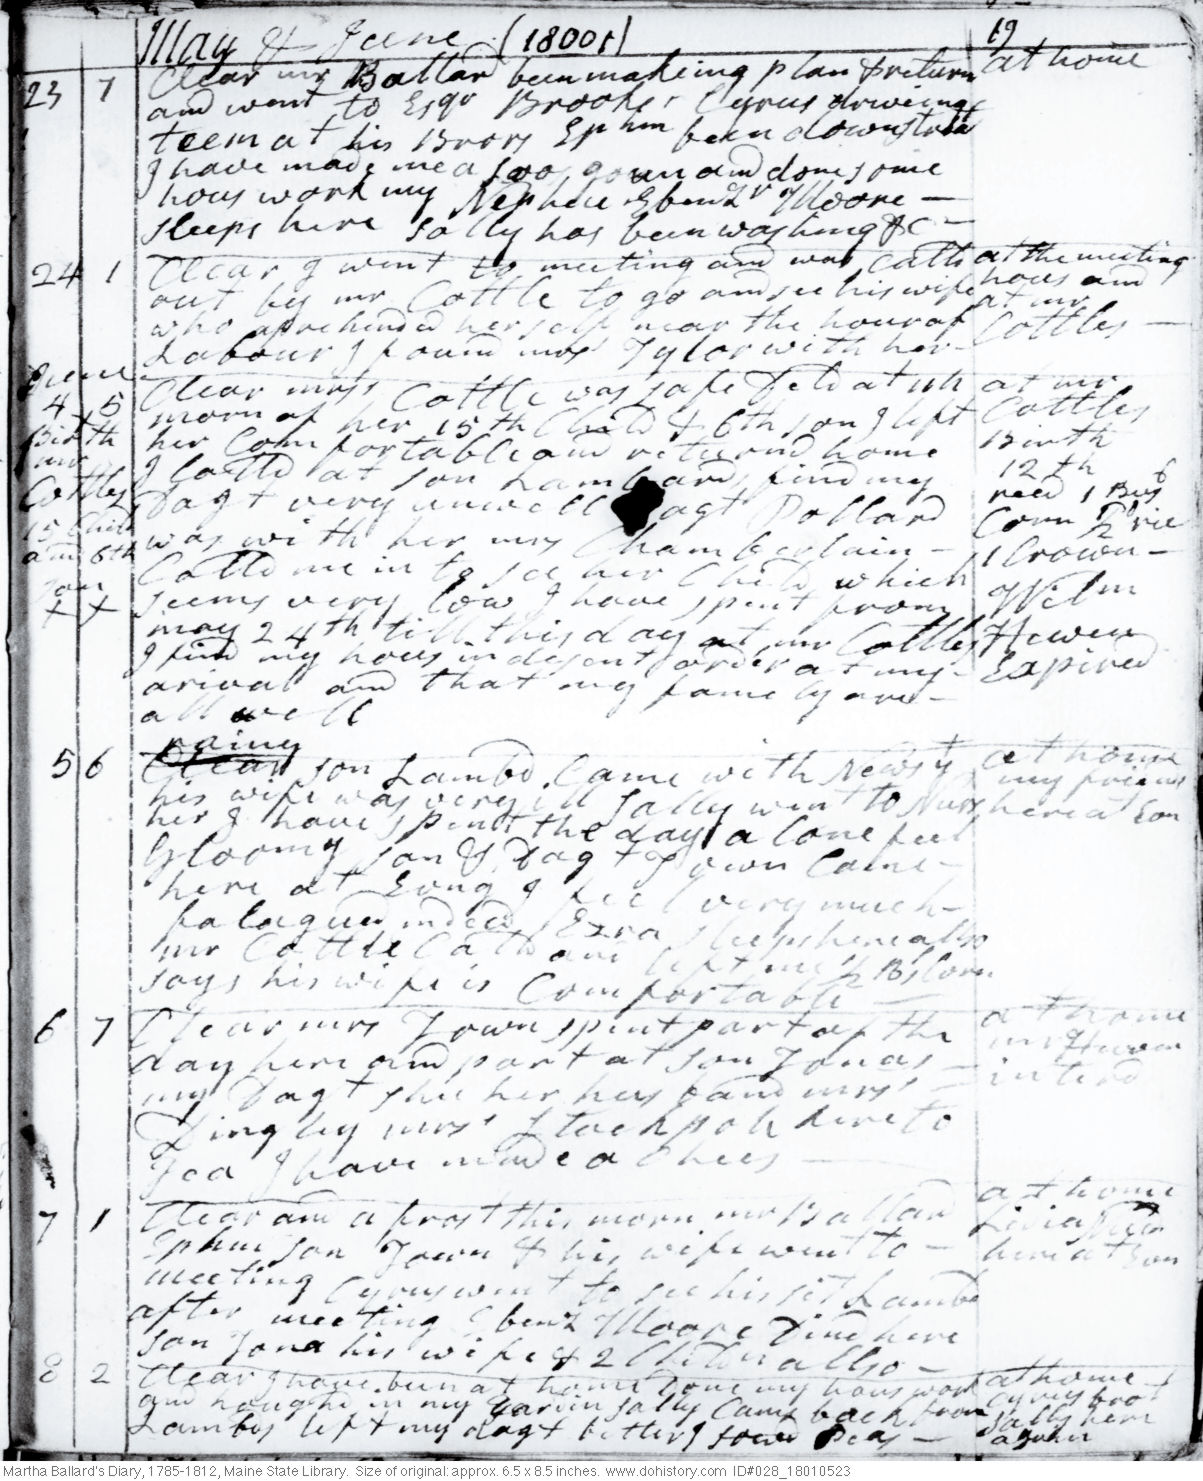 May & June (1801) 19
23 7 Clear mr Ballard been makeing plan & return at home
and went to Esqr Brooks Cyrus driveing
teem at his Brors Ephm been down
I have made me a gown and done some
hous work my Nephew Ebenzr Moore –
sleeps here Sally has been washing &c –
24 1 Clear I went to meeting and was Calld at the meeting
out by mr Cottle to go and see his wife hous and
who aprehended her self near the hour of at mr
Labour I found mrs Tylor with her – Cottles –
June
4 5 Clear mrs Cottle was safe Deld at 11h at mr
morn of her 15th Child & 6th son I left Cottles
Birth her Comfortable and returnd home Birth
mr I Calld at son Lambards find my 12th
Cottles Dagt very unwell Dagt Pollard recd 1 Bus
15 Child was with her mrs Chamberlain – Corn
and 6th Calld me in to see her Child which 1 Crown –
son seems very low I have spent from Wilm
X X may 24th till this day at mr Cottles Hewen
I find my hous in desent order at my – Expired
arival and that my famely are –
all well
rainy
5 6 Clear son Lambd Came with News yt at home
his wife was very ill Sally went to Nurs my friends
her I have spent the day alone feel here at Evn
Gloomy son & Dagt Town Came –
here at Evng I feel very much –
fatagued indeed Ezra sleeps here allso
mr Cottle Calld and left me ½ Bs Corn
says his wife is Comfortable –
6 7 Clear mrs Town spent part of the at home
day here and part at son Jonas – mr Hewen
my Dagt shee her husband mrs – interd
Dingley mrs Stackpole here to
Tea I have made a Chees –
7 1 Clear and a frost this morn mr Ballard at home
Ephm son Town & his wife went to – Livia
meeting Cyrus went to see his sist Lambd here at Evn
after meeting Ebenz Moore Dind here
son Jona his wife & 2 Childn allso –
8 2 Clear I have been at home done my hous work at home –
and hough'd in my gardin Sally Came back from Cyrus brot
Lambds left my dagt better I sowd Peas – Sally here
again
Martha Ballard's Diary, 1785-1812, Maine State Library. Size of original: approx. 6.5 x 8.5 inches. www.dohistory.com ID#028_18010523